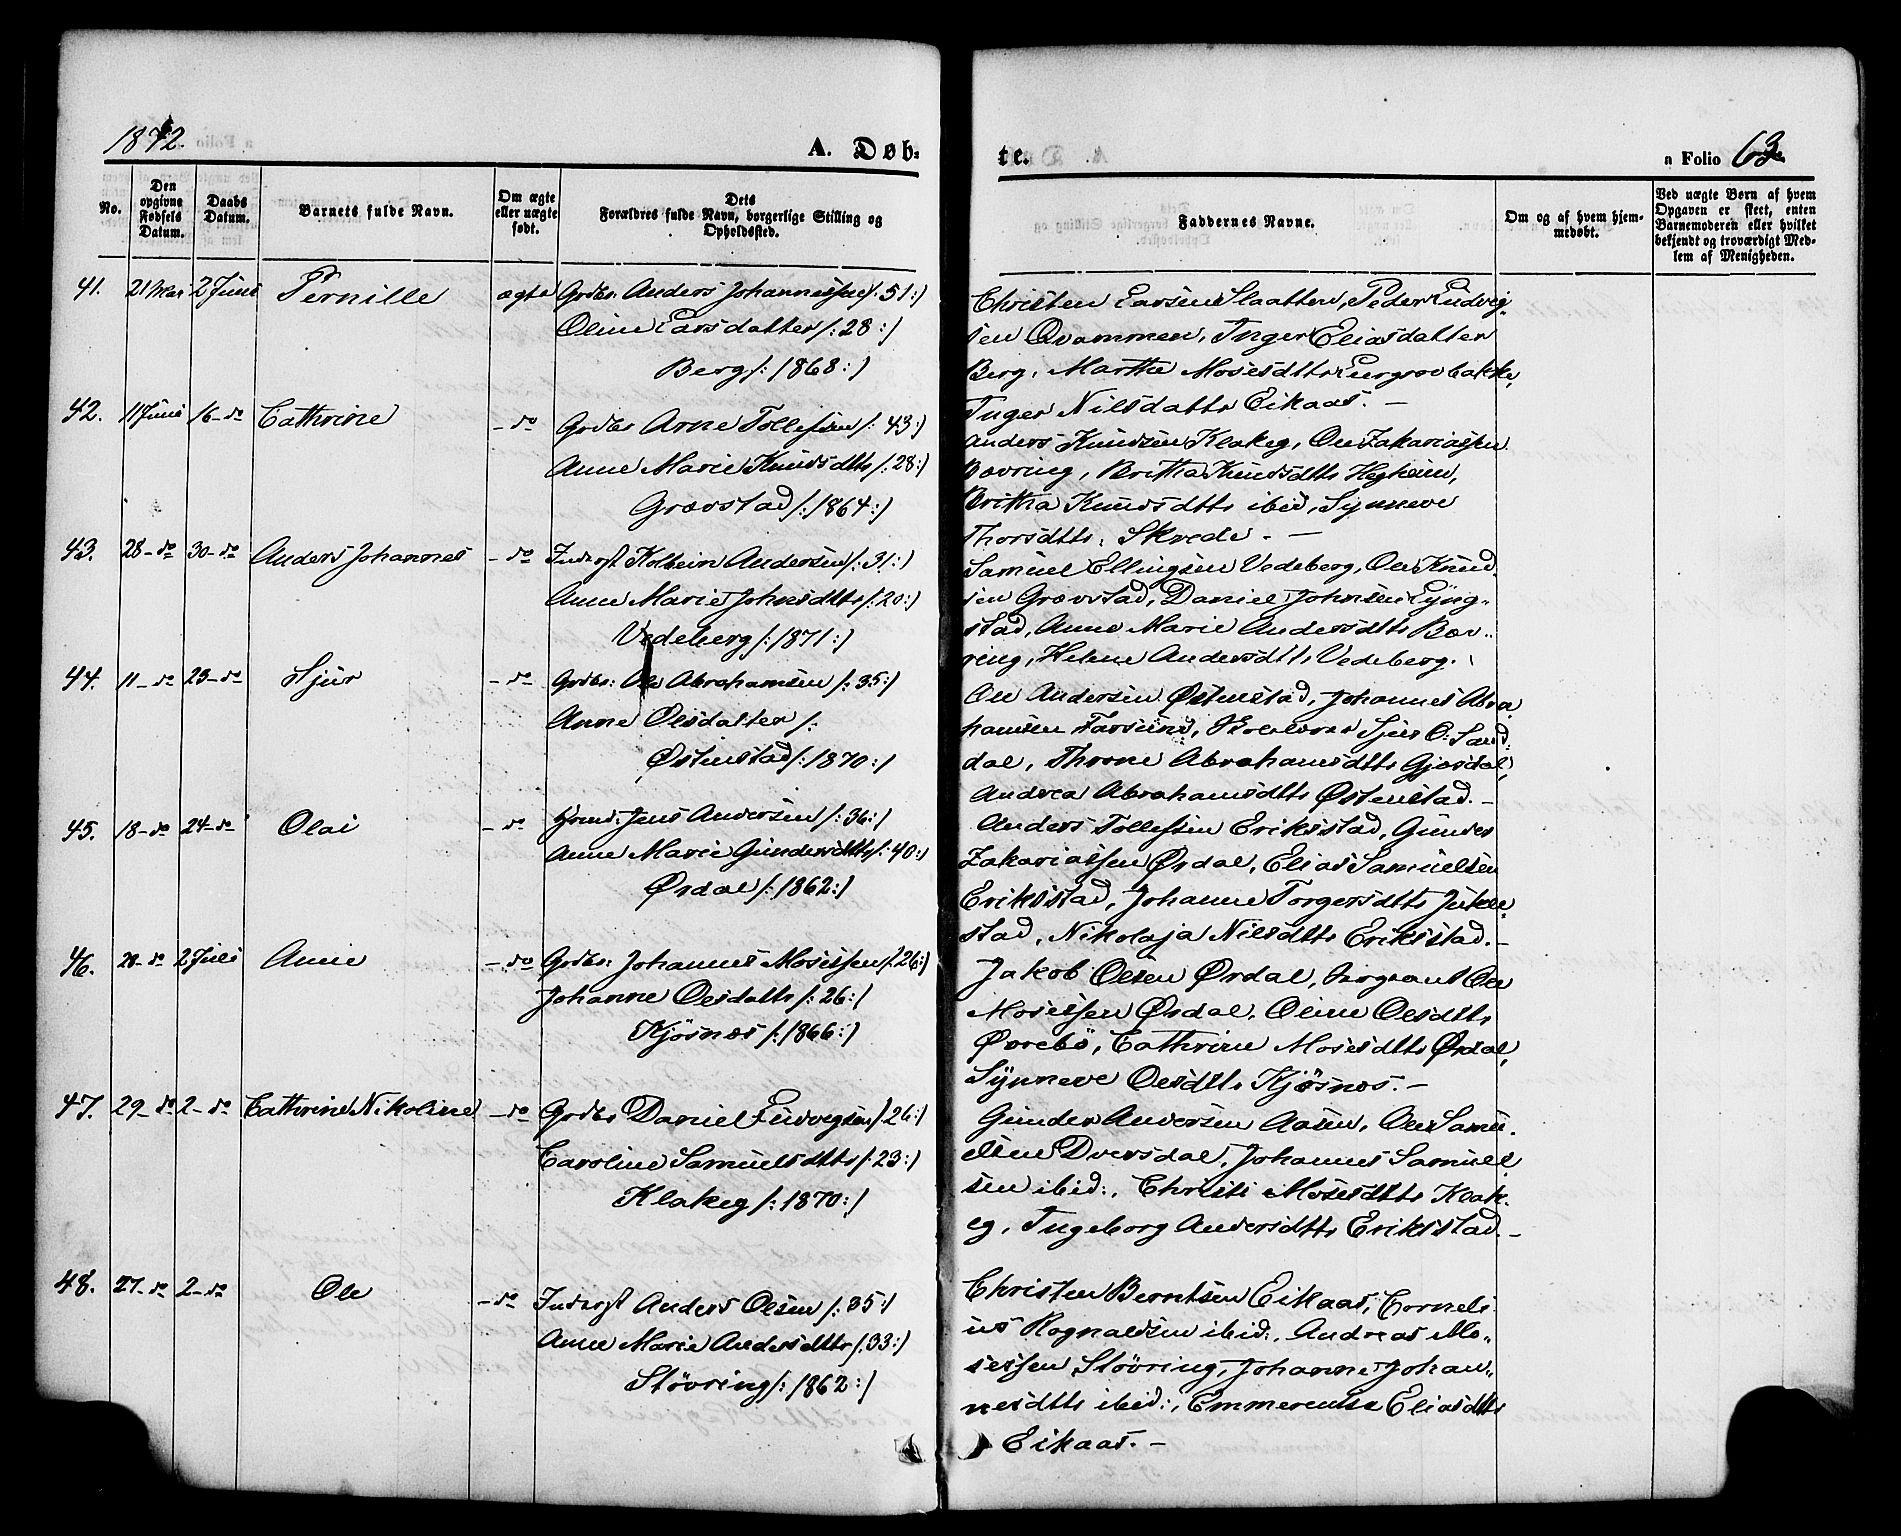 1872.
A. Døb=
te.
n Folio 63.
No.
Den opgivne Fødsels Datum.
Daabs Datum.
Barnets fulde Navn.
Om ægte eller uægte født.
Dets Forældres fulde Navn, borgerlige Stilling og Opholdssted.
Faddernes Navne.
Om og af hvem hjemmedøbt.
Ved uægte Børn af hvem Opgaven er skeet, enten Barnemoderen eller hvilket bekjendt og troværdigt Medlem af Menigheden.
41. 21 Mai 2 Juni Pernille ægte Grdbr. Anders Johannessen /: 51 :/
Oline Larsdatter /: 28 :/
Berg /: 1868 :/
Christen Larsen Slaatten, Peder Ludvig-
sen Qvammen, Inger Eliasdatter
Berg, Marthe Mosesdttr
Inger Nilsdattr Eikaas. -
42. 11 Juni 16 - do Cathrine - do Grdbr Arne Tollefsen /: 43 :/
Anne Marie Knudsdttr /: 28 :/
Grovstad /: 1864 :/
Anders Knudsen Klakeg, Ole Zakariassen
Bovring, Britha Knudsdttr Hegheim,
Britha Knudsdttr ibid, Synneve
Thorsdttr, Skrede. -
43. 28 - do 30 - do Anders Johannes - do Inderst Kolbein Andersen /: 31 :/
Anne Marie Johnsdttr /: 20 :/
Vedeberg /: 1871 :/
Samuel Ellingsen Vedeberg, Ole Knud-
sen Grovstad, Daniel Johnsen Lyng-
stad, Anne Marie Andersdttr Bov-
ring, Helene Andersdttr Vedeberg.
44. 11 - do 23 - do Sjur - do Grdbr: Ole Abrahamsen /: 35 :/
Anne Olsdatter /:
Østenstad /: 1870 :/
Ole Andersen Østenstad, Johannes Abra
hamsen Farsund, Skolelærer Sjur O: Sand:
dal, Thorne Abrahamsdttr Gjesdal,
Andrea Abrahamsdttr Østenstad. -
45. 18 - do 24 - do Olai - do Jens Andersen /: 36 :/
Anne Marie Gundersdttr /: 40 :/
Ørdal /: 1862 :/
Anders Tollefsen Eriksstad, Gunder
Zakariassen Ørdal, Elias Samuelsen
Eriksstad, Johanne Torgersdttr Jukel-
stad, Nikolaja Nilsdttr Eriksstad. -
46. 20 - do 2 Juli Anne - do Grdbr: Johannes Mosessen /: 26 :/
Johanne Olsdattr /: 26 :/
Kjøsnes /: 1866 :/
Jakob Olsen Ørdal, Sergeant Ole
Mosessen Ørdal, Oline Olsdttr
Øvrebö, Cathrine Mosesdttr Ørdal,
Synneve Olsdttr Kjøsnes. -
47. 29 - do 2 - do Cathrine Nikoline - do Grdbr Daniel Ludvigsen /: 26 :/
Caroline Samuelsdttr /: 23 :/
Klakeg /: 1870 :/
Gunder Andersen Aasen, Ole Samu-
elsen Dvergsdal, Johannes Samuel
sen ibid:, Christi Mosesdttr Klak-
eg, Ingeborg Andersdttr Eriksstad. -
48. 27 - do 2 - do Ole - do Inderst Anders Olsen /: 35 :/
Anne Marie Andersdttr /: 33 :/
Støvring /: 1862 :/
Christen Berntsen Eikaas, Corneli-
us Rognaldsen ibid:, Andreas Mo-
sessen Støvring, Johanne Johan-
nesdttr ibid:, Emmerentse Eliasdttr
Eikaas. -